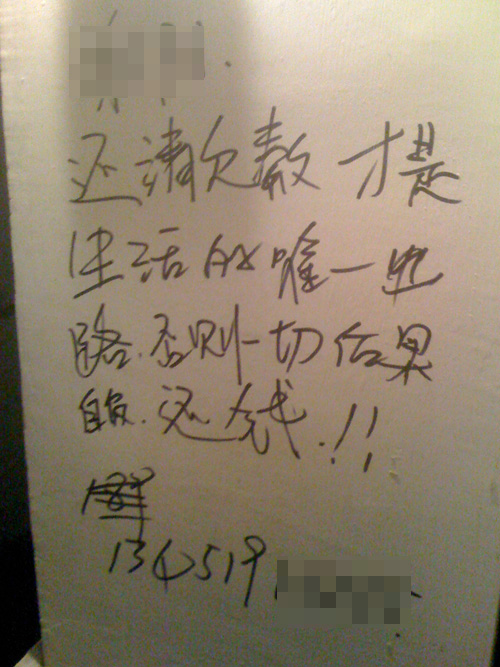 还清欠数 才是
生活的唯一出
路.否则一切后果
自负.还钱.!!
134519